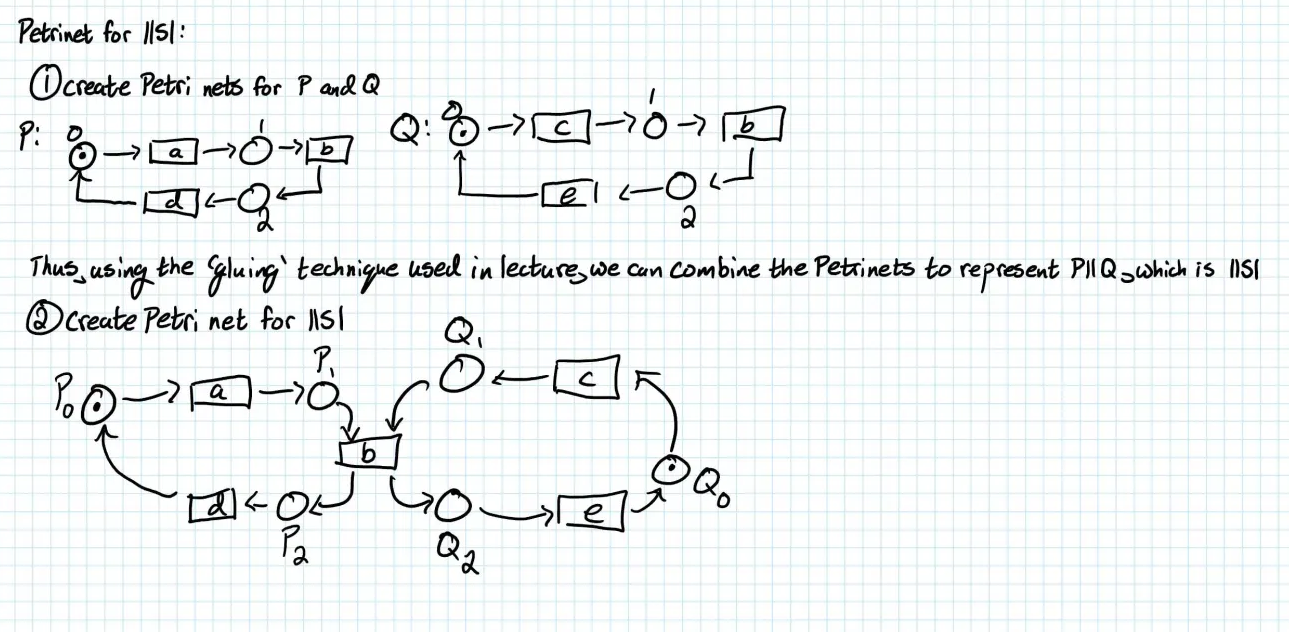 Petrinet for ||S|:
① create Petri nets for P and Q
P: 0 a 1 b
d 2
Q: 0 c 1 b
e 2
Thus, using the 'gluing' technique used in lecture, we can combine the Petrinets to represent P||Q, which is ||S|
② Create Petri net for ||S|
P0 a P1 Q1 c
b
d P2 Q2 e Q0